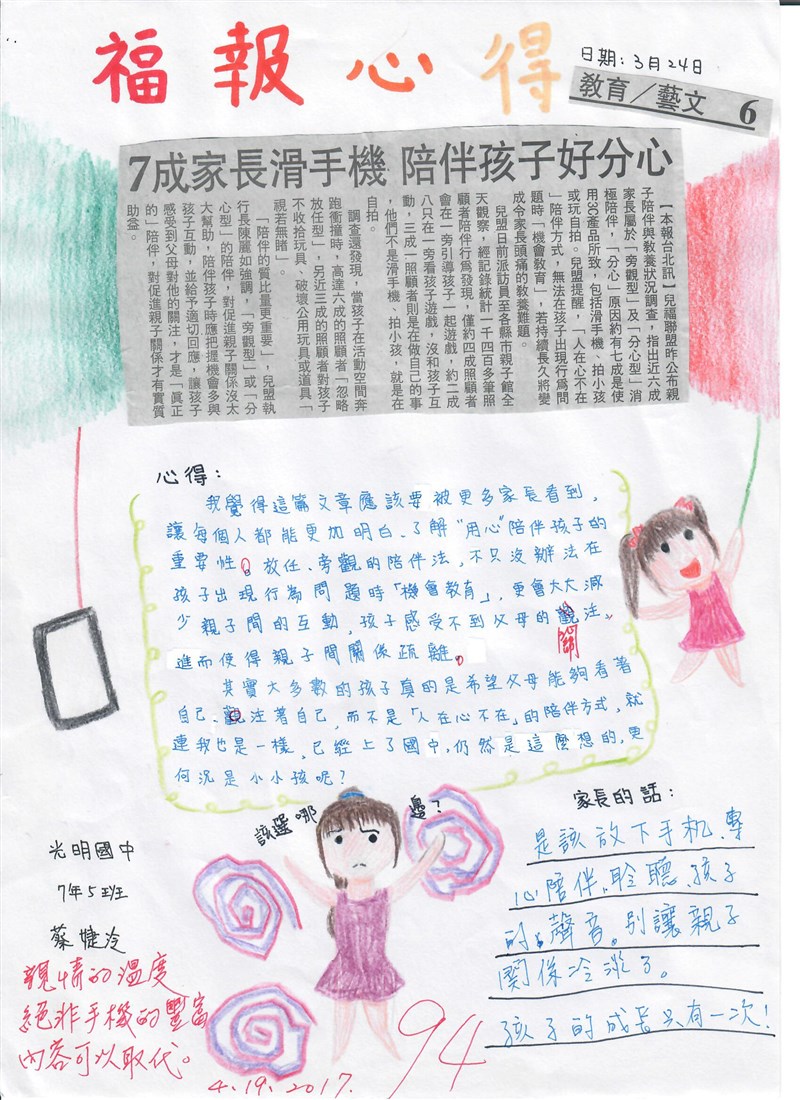 福報心得
日期:3月24日
教育／藝文 6
7成家長滑手機 陪伴孩子好分心
【本報台北訊】兒福聯盟昨公布親
子陪伴與教養狀況調查，指出近六成
家長屬於「旁觀型」及「分心型」消
極陪伴，「分心」原因約有七成是使
用3C產品所致，包括滑手機、拍小孩
或玩自拍。兒盟提醒，「人在心不在
」陪伴方式，無法在孩子出現行為問
題時「機會教育」，若持續長久將變
成令家長頭痛的教養難題。
兒盟日前派訪員至各縣市親子館全
天觀察，經記錄統計一千四百多筆照
顧者陪伴行為發現，僅約四成照顧者
會在一旁引導孩子一起遊戲，約二成
八只在一旁看孩子遊戲，沒和孩子互
動，三成一照顧者則是在做自己的事
，他們不是滑手機、拍小孩，就是在
自拍。
調查還發現，當孩子在活動空間奔
跑衝撞時，高達六成的照顧者「忽略
放任型」，另近三成的照顧者對孩子
不收拾玩具、破壞公用玩具或道具「
視若無睹」。
「陪伴的質比量更重要」，兒盟執
行長陳麗如強調，「旁觀型」或「分
心型」的陪伴，對促進親子關係沒太
大幫助，陪伴孩子時應把握機會多與
孩子互動，並給予適切回應，讓孩子
感受到父母對他的關注，才是「真正
的」陪伴，對促進親子關係才有實質
助益。
心得:
我覺得這篇文章應該要被更多家長看到，
讓每個人都能更加明白、了解"用心"陪伴孩子的
重要性。放任、旁觀的陪伴法，不只沒辦法在
孩子出現行為問題時「機會教育」，更會大大減
少親子間的互動，孩子感受不到父母的觀注，
關
進而使得親子間關係疏離。
其實大多數的孩子真的是希望父母能夠看著
自己、觀注著自己，而不是「人在心不在」的陪伴方式，就
連我也是一樣，已經上了國中，仍然是這麼想的，更
何況是小小孩呢?
該選哪邊?
家長的話:
是該放下手机、專
心陪伴、聆聽孩子
的聲音。別讓親子
關係冷淡了。
孩子的成長只有一次!
光明國中
7年5班
蔡婕泠
親情的溫度
絕非手機的豐富
內容可以取代。
4.19.2017.
94